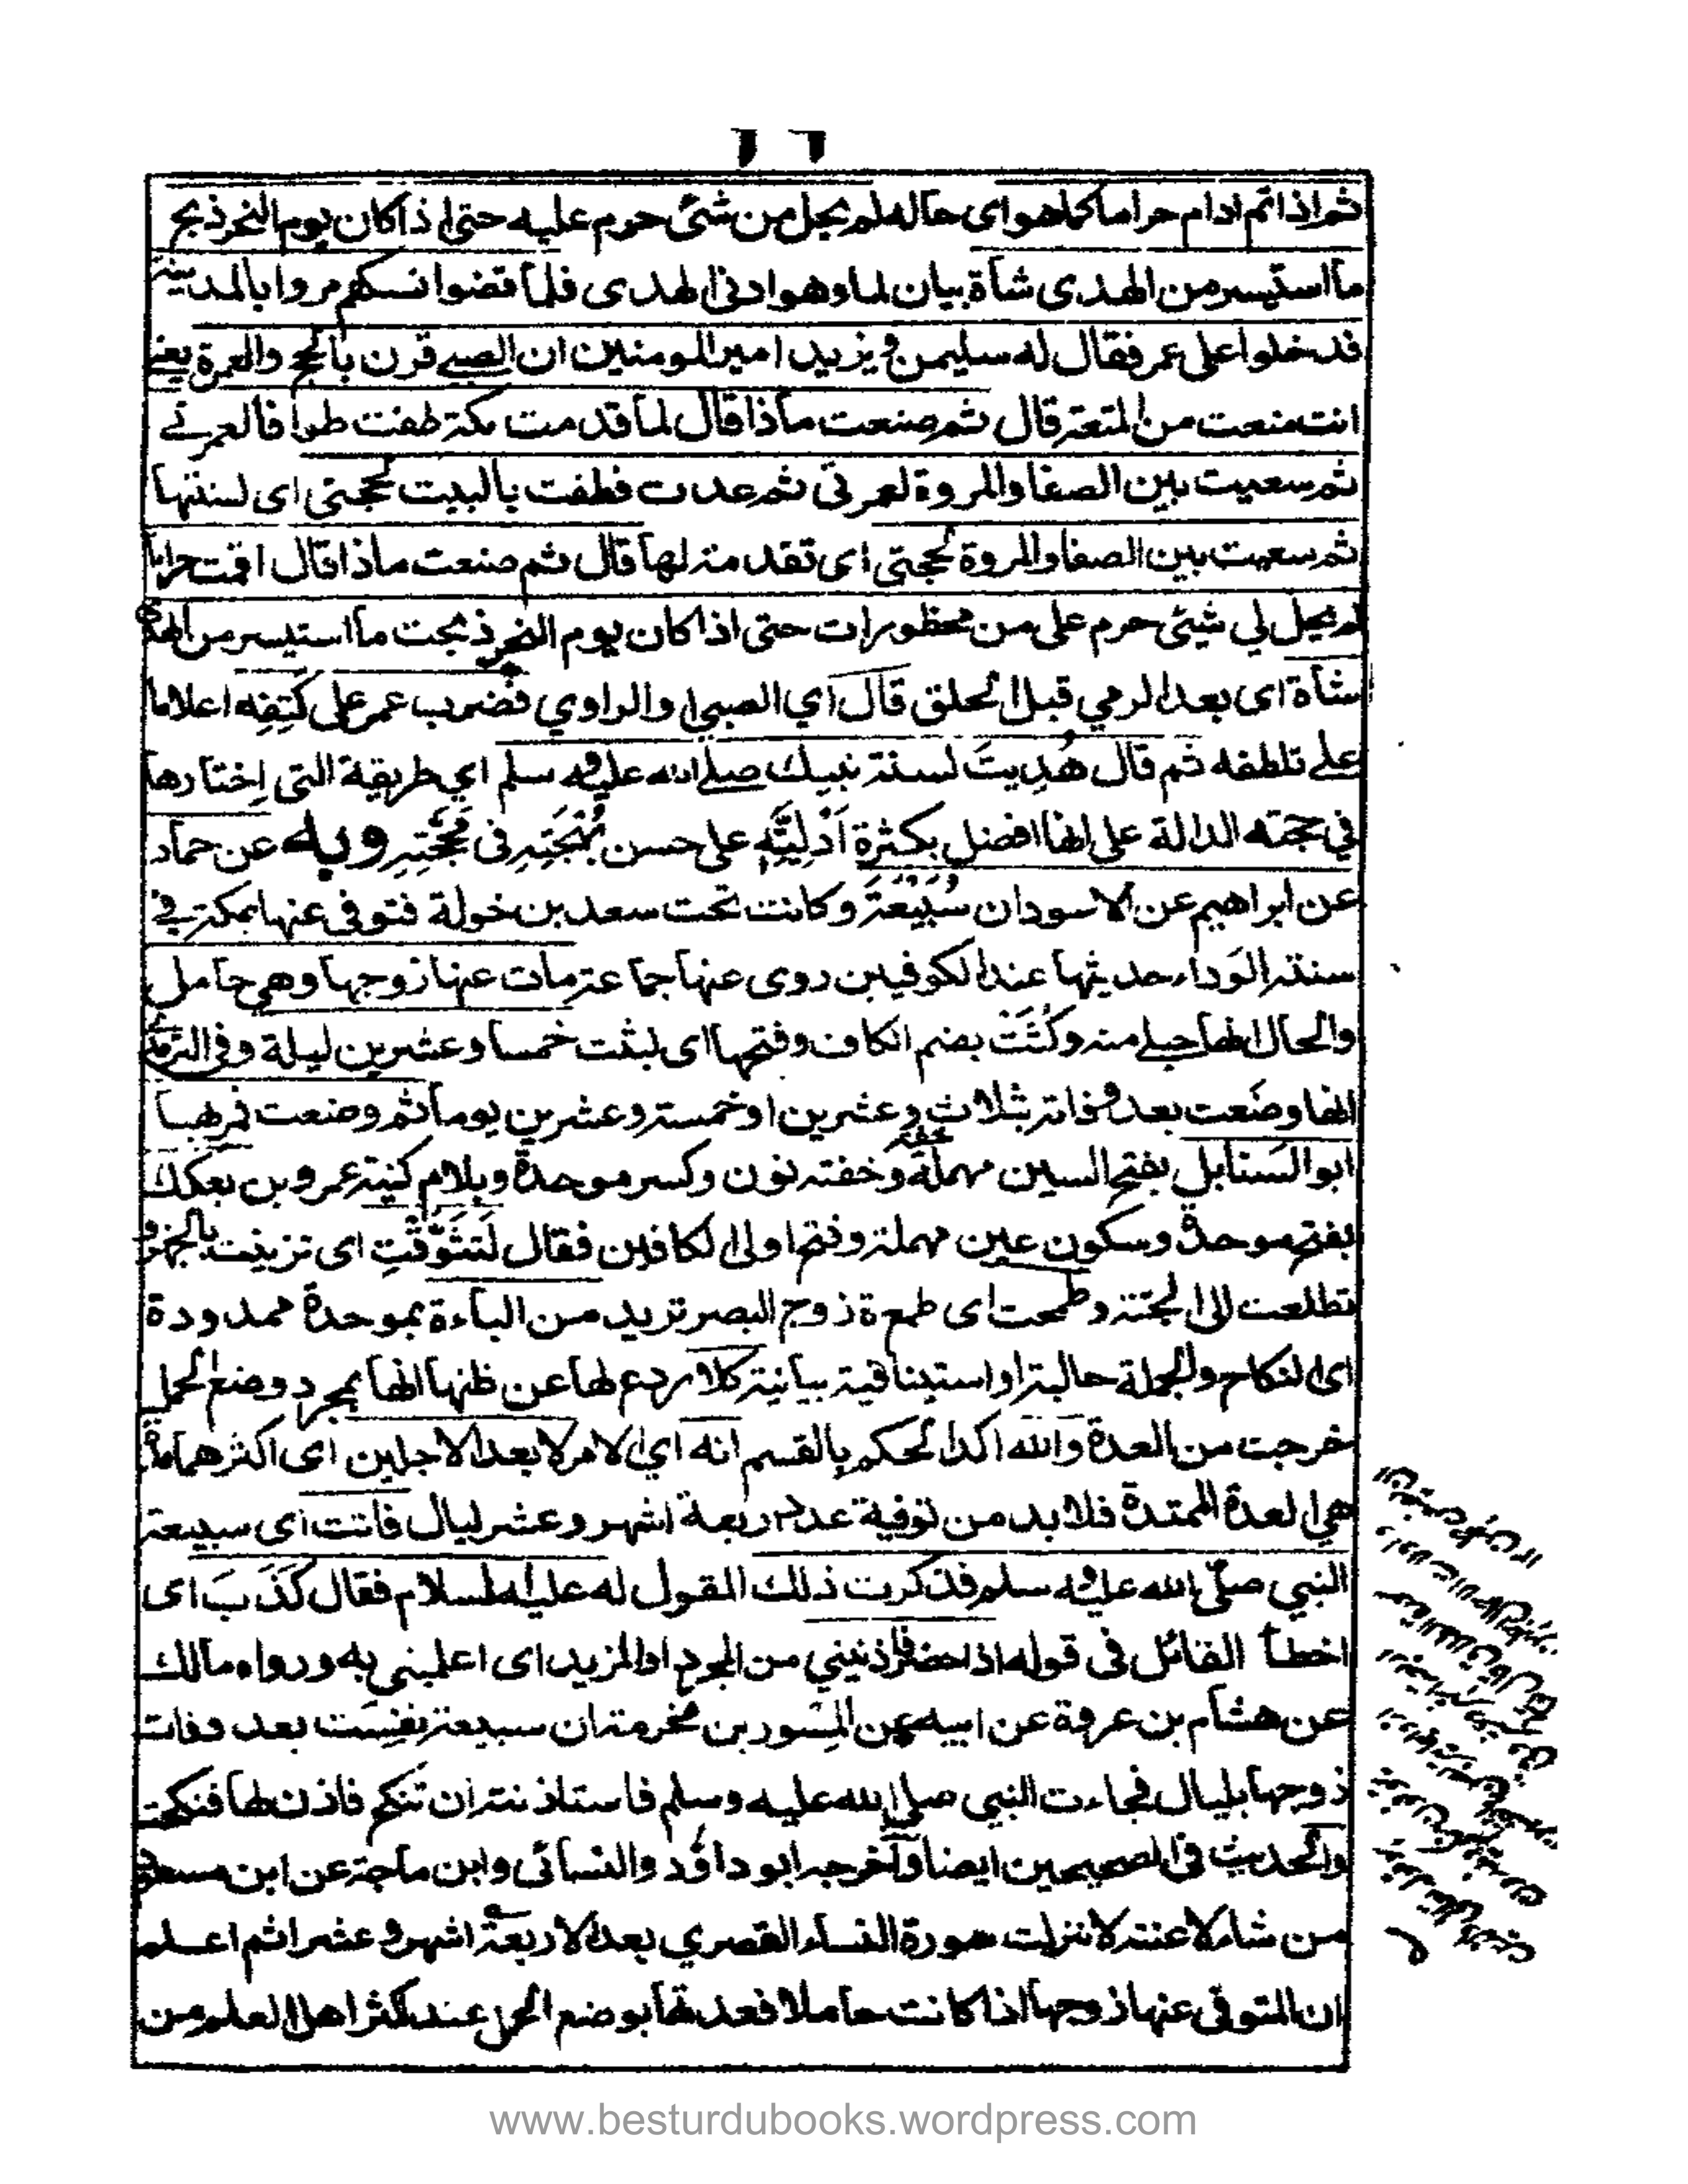 ٦٦
ثم اذا تم ادام حراما كما هو اى حاله لم يحل من شئ حرم عليه حتى اذا كان يوم النحر ذبح
ما استيسر من الهدى شاة بيان لما وهو ادنى الهدى فلما قضوا نسكهم مروا بالمدينة
فدخلوا على عمر فقال له سليمن و يزيد امير المومنين ان الصبى قرن بالحج والعمرة يعنى
انت منعت من المتعة قال ثم صنعت ماذا قال لما قدمت مكة طفت طوافا لعمرتى
ثم سعيت بين الصفا والمروة لعمرتى ثم عدت فطفت بالبيت لحجتى اى لسنتها
ثم سعيت بين الصفا والمروة لحجتى اى تقدمة لها قال ثم صنعت ماذا قال اقمت حراما
لم يحل لي شيئ حرم على من محظورات حتى اذا كان يوم النحر ذبحت ما استيسر من الهدى
شاة اى بعد الرمي قبل الحلق قال اي الصبى والراوي فضرب عمر على كَتِفِه اعلاما
على تلطفه ثم قال هُدِيتَ لسنة نبيك صلى الله عليه و سلم اي طريقة التى اختارها
في حجته الدالة على انها افضل بكثرة اَدْلِيَّةٍ على حسن فى وبه عن حماد
عن ابراهيم عن الاسود ان سُبَيْعَةَ وكانت تحت سعد بن خولة فتوفى عنها بمكة فى
سنة الوداع حديثها عند الكوفيين روى عنها جماعة مات عنها زوجها وهى حامل
والحال انها حبلى منه وكُثَتْ بضم الكاف وفتحها اى لبثت خمسا وعشرين ليلة وفى الترمذى
انها وضعت بعد وفاته بثلاث وعشرين او خمسة وعشرين يوما ثم وضعت فمر بها
ابو السنابل بفتح السين مهملة وخفة نون وكسر موحدة وبلام كنية عمرو بن بعكك
بفتح موحدة وسكون عين مهملة وفتح اولى الكافين فقال لَتَشَوَّفْتِ اى تزينت
تطلعت الى وطمحت اى البصر تريدين الباءة بموحدة ممدودة
اى النكاح والجملة حالية او استينافية بيانية كلا ردع لها عن ظنها انها بمجرد وضع الحمل
خرجت من العدة والله اكد الحكم بالقسم انه اي الامر لا بعد الاجلين اى اكثرهما مدة
هي العدة الممتدة فلا بد من توفية عدد اربعة اشهر وعشر ليال فاتت اى سبيعة
النبي صلى الله عليه و سلم فذكرت ذلك المقول له عليه السلام فقال كَذَبَ اى
اخطأ القائل فى قوله اذا حضر فاذنيني من المجرد او المزيد اى اعلمينى به ورواه مالك
عن هشام بن عروة عن ابيه عن المِسْور بن مخرمة ان سبيعة نفِسَت بعد وفات
زوجها بليال فجاءت النبي صلى الله عليه وسلم فاستاذنته ان تنكح فاذن لها فنكحت
والحديث فى الصحيحين ايضا واخرجه ابو داؤد والنسائى وابن ماجة عن ابن مسعود
من شاء لاعنته لانزلت سورة النساء القصرى بعد الاربعة اشهر و عشرا ثم اعلم
ان المتوفى عنها زوجها اذا كانت حاملا فعدتها بوضع الحمل عند اكثر اهل العلم من
www.besturdubooks.wordpress.com